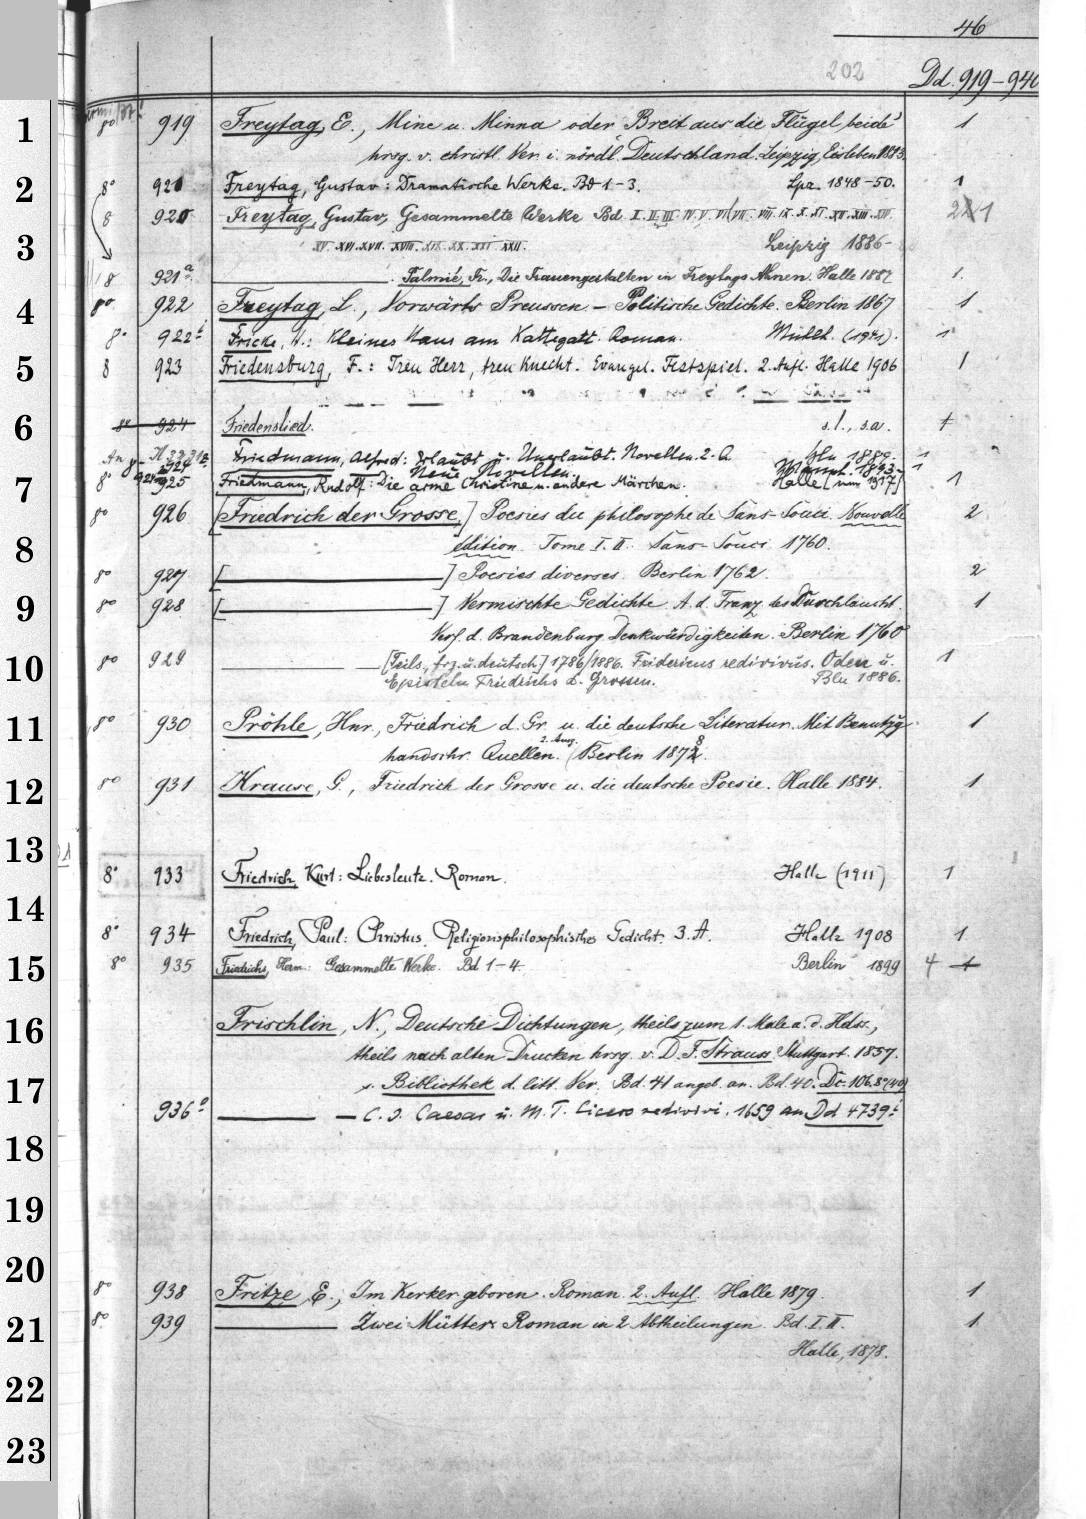 46
202
Dd. 919-940
1 8° 919 Freytag, E., Mine u. Minna oder Breit aus die Flügel beide 1
hrsg. v. christl. Ver. i. nördl. Deutschland. Leipzig, Eisleben 1853.
2 8° 921 Freytag, Gustav: Dramatische Werke. Bd 1-3. Lpz. 1848-50. 1
8 920 Freytag, Gustav, Gesammelte Werke Bd. I. II. III. IV. V. VI. VII. VIII. IX. X. XI. XII. XIII. XIV. 1
3 XV. XVI. XVII. XVIII. XIX. XX. XXI. XXII. Leipzig 1886-
8 921a Palmié, Fr., Die Frauengestalten in Freytags Ahnen. Halle 1887 1.
4 8° 922 Freytag, L., Vorwärts Preussen. - Politische Gedichte. Berlin 1867 1
8° 922 Fricke, W.: Kleines Haus am Kattegatt. Roman. Mühlh. (1941). 1
5 8 923 Friedensburg, F.: Treu Herr, treu Knecht. Evangel. Festspiel. 2. Aufl. Halle 1906 1
6 8° 924 Friedenslied. s.l., s.a. 1
Friedmann, Alfred: Erlaubt u. Unerlaubt. Novellen. 2. A. Bln 1889. 1
924 Neue Novellen. 1893- 1
7 8° 925 Friedmann, Rudolf: Die arme Christine u. andere Märchen. Halle [um 1917] 1
8° 926 [Friedrich der Grosse.] Poesies du philosophe de Sans-Souci. Nouvelle 2
8 édition. Tome I. II. Sans-Souci 1760.
8° 927 [ ] Poesies diverses. Berlin 1762. 2
9 8° 928 [ ] Vermischte Gedichte. A. d. Franz. des Durchlaucht. 1
Verf. d. Brandenburg. Denkwürdigkeiten. Berlin 1760
10 8° 929 [Teils. frz. u. deutsch] 1786/1886. Fridericus redivivus. Oden u. 1
Episteln Friedrichs d. Grossen. Bln 1886.
11 8° 930 Pröhle, Hnr., Friedrich d. Gr. u. die deutsche Literatur. Mit Benutzg 1
handschr. Quellen. 2. Ausg. Berlin 1878.
12 8° 931 Krause, G., Friedrich der Grosse u. die deutsche Poesie. Halle 1884. 1
13
8° 933 Friedrich, Kurt: Liebesleute. Roman. Halle (1911) 1
14
8° 934 Friedrich, Paul: Christus. Religionsphilosophisches Gedicht. 3. A. Halle 1908 1
15 8° 935 Friedrichs, Herm.: Gesammelte Werke. Bd 1-4. Berlin 1899 4 1
16 Frischlin, N., Deutsche Dichtungen, theils zum 1. Male a. d. Hdss.,
theils nach alten Drucken hrsg. v. D. F. Strauss. Stuttgart. 1857.
17 s. Bibliothek d. litt. Ver. Bd. 41 angeb. an. Bd. 40. Dc. 106. 8° (40)
936a - C. J. Caesar u. M. T. Cicero redivivi. 1659 an Dd 4739
18
19
20
8° 938 Fritze, E., Im Kerker geboren. Roman. 2. Aufl. Halle 1879. 1
21 8° 939 Zwei Mütter. Roman in 2 Abtheilungen. Bd. I. II. 1.
Halle, 1878.
22
23